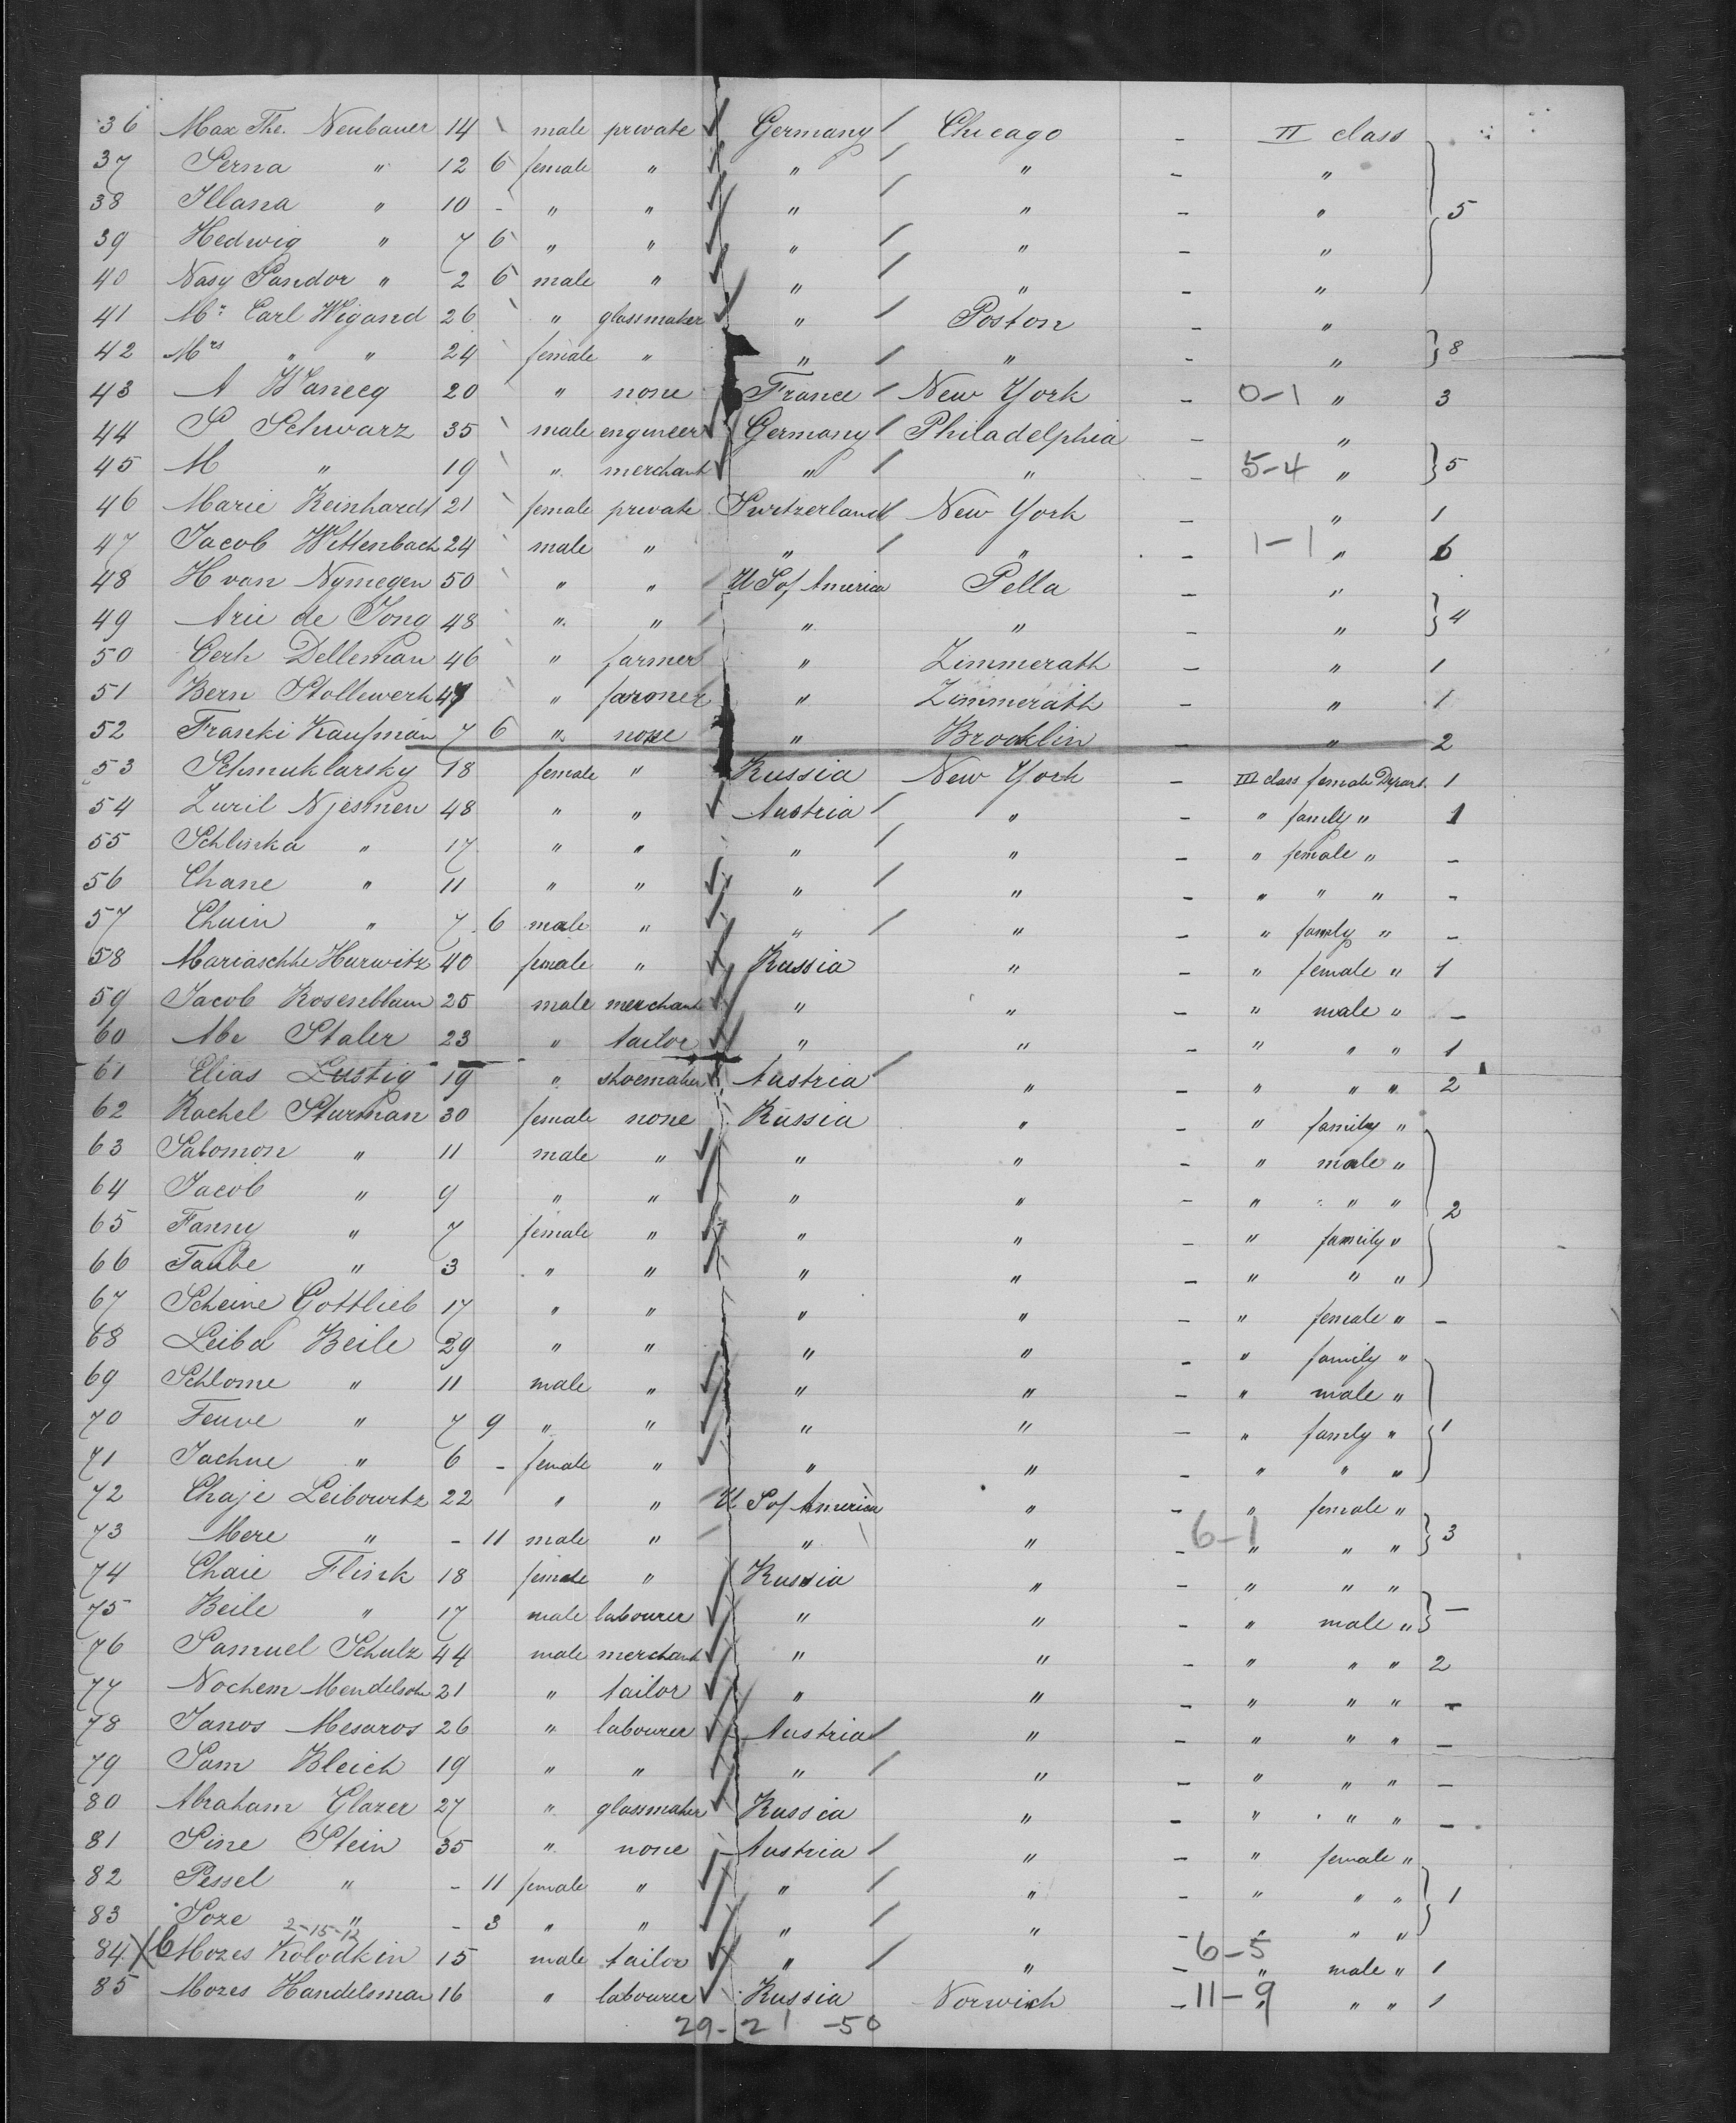 36 Max The. Neubauer 14 male private Germany Chicago - II class
37 Serna " 12 6 female " " " - "
38 Illana " 10 - " " " " - " 5
39 Hedwig " 7 6 " " " " - "
40 Nasy Sandor " 2 6 male " " " - "
41 Mr. Carl Wigand 26 " glassmaker " Poston - "
42 Mrs " " 24 female " " " - " 8
43 A Wanecq 20 " none France New York - 0-1 " 3
44 S Schwarz 35 male engineer Germany Philadelphia - "
45 M " 19 " merchant " " - 5-4 " 5
46 Marie Reinhardt 21 female private Switzerland New York - " 1
47 Jacob Wittenbach 24 male " " " - 1-1 " 6
48 H van Nymegen 50 " " U S of America Pella - "
49 Arie de Jong 48 " " " " - " 4
50 Gerh Delleman 46 " farmer " Zimmerath - " 1
51 Bern Stollewerk " farmer " Zimmerath - " 1
52 Franki Kaufman 7 6 " none " Brooklin - " 2
53 Schmuklarsky 18 female " Russia New York - III class female Depart. 1
54 Zuril Njesmen 48 " " Austria " - " family " 1
55 Schlinka " 17 " " " " - " female " -
56 Chane " 11 " " " " - " " " -
57 Chuin " 7 6 male " " " - " family " -
58 Mariaschhe Hurwitz 40 female " Russia " - " female " 1
59 Jacob Rosenblum 25 male merchant " " - " male " -
60 Abe Staler 23 " tailor " " - " " " 1
61 Elias Lustig 19 " shoemaker Austria " - " " " 2
62 Rachel Sturman 30 female none Russia " - " family "
63 Salomon " 11 male " " " - " male "
64 Jacob " 9 " " " " - " " " 2
65 Fanny " 7 female " " " - " family "
66 Taube " 3 " " " " - " " "
67 Scheine Gottlieb 17 " " " " - " female " -
68 Leiba Beile 29 " " " " - " family "
69 Schlome " 11 male " " " - " male "
70 Feuve " 7 9 " " " " - " family " 1
71 Jachne " 6 - female " " " - " " "
72 Chaje Leibowitz 22 " " U S of America " - " female "
73 Mere " - 11 male " " " - 6-1 " " " 3
74 Chaie Flink 18 female " Russia " - " " "
75 Beile " 17 male labourer " " - " male " -
76 Samuel Schulz 44 male merchant " " - " " " 2
77 Nochem Mendelsohn 21 " tailor " " - " " " -
78 Janos Mesaros 26 " labourer Austria " - " " " -
79 Sam Bleich 19 " " " " - " " " -
80 Abraham Glazer 27 " glassmaker Russia " - " " " -
81 Sine Stein 35 " none Austria " - " female "
82 Pessel " - 11 female " " " - " " " 1
83 Soze " - 3 " " " " - " " "
2-15-12
84 X Mozes Kolodkin 15 male tailor " " - 6-5 " male " 1
85 Mozes Handelsman 16 " labourer Russia Norwich - 11-9 " " " 1
29-21 -50